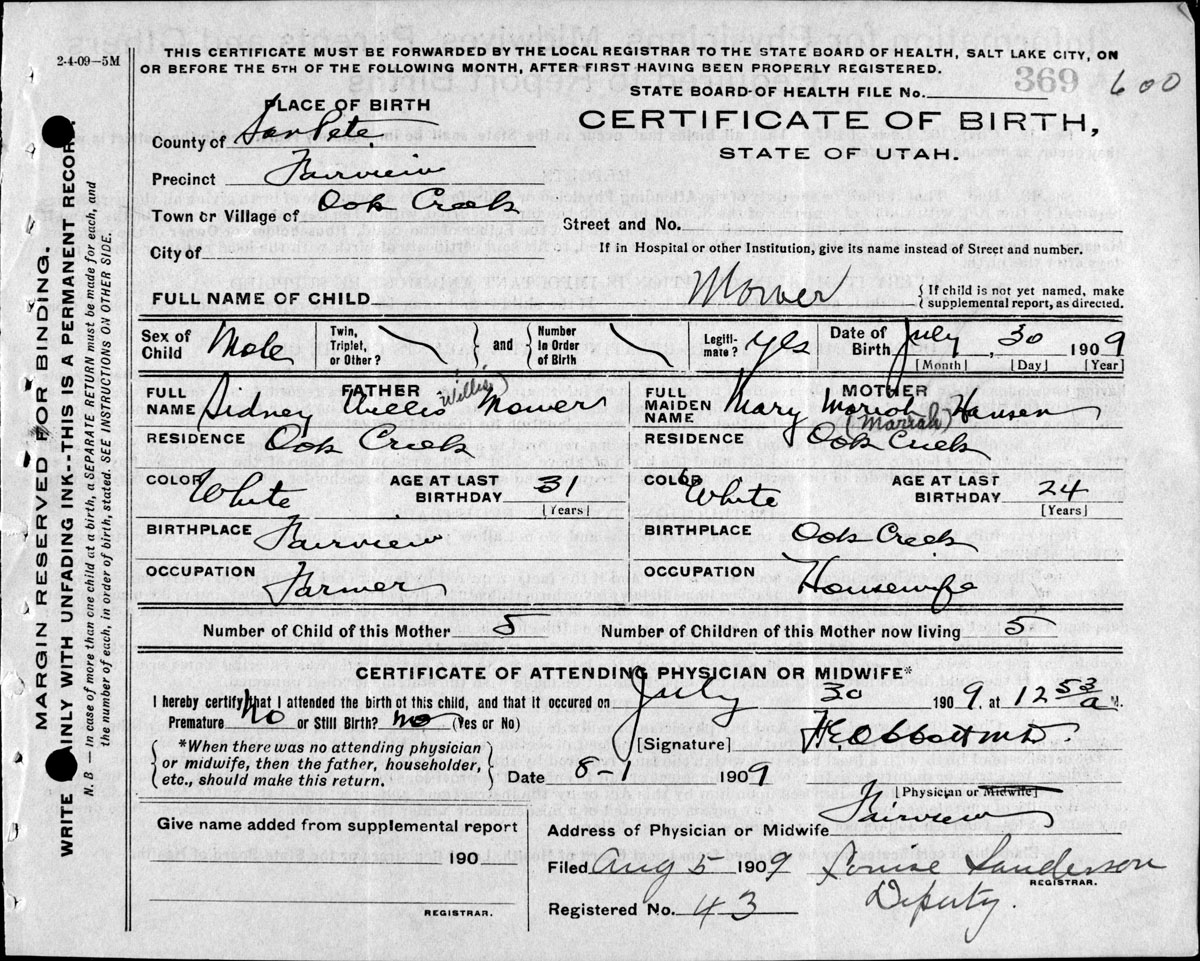 2-4-09-5M
THIS CERTIFICATE MUST BE FORWARDED BY THE LOCAL REGISTRAR TO THE STATE BOARD OF HEALTH, SALT LAKE CITY, ON
OR BEFORE THE 5TH OF THE FOLLOWING MONTH, AFTER FIRST HAVING BEEN PROPERLY REGISTERED.
369
STATE BOARD OF HEALTH FILE No. 600
PLACE OF BIRTH
CERTIFICATE OF BIRTH,
STATE OF UTAH.
County of SanPete
Precinct Fairview
Town or Village of Oak Creek
Street and No.
City of
If in Hospital or other Institution, give its name instead of Street and number.
FULL NAME OF CHILD Mower
{ If child is not yet named, make
supplemental report, as directed.
Sex of Child Male
Twin, Triplet, or Other? } and { Number in Order of Birth
Legitimate? Yes
Date of Birth July, 30 1909
[Month] [Day] [Year]
FATHER
FULL NAME Sidney Willis Mower
Willis
RESIDENCE Oak Creek
COLOR White AGE AT LAST BIRTHDAY 31
[Years]
BIRTHPLACE Fairview
OCCUPATION Farmer
MOTHER
FULL MAIDEN NAME Mary Mariah Hansen
(Mariah)
RESIDENCE Oak Creek
COLOR White AGE AT LAST BIRTHDAY 24
[Years]
BIRTHPLACE Oak Creek
OCCUPATION Housewife
Number of Child of this Mother 5 Number of Children of this Mother now living 5
CERTIFICATE OF ATTENDING PHYSICIAN OR MIDWIFE*
I hereby certify that I attended the birth of this child, and that it occured on July 30 1909, at 12 53 a M.
Premature No or Still Birth? No (Yes or No)
{ *When there was no attending physician
or midwife, then the father, householder,
etc., should make this return. }
[Signature] Abbott M.D.
Date 8-1 1909
[Physician or Midwife]
Address of Physician or Midwife Fairview
Give name added from supplemental report
190
REGISTRAR.
Filed Aug 5 1909 Louise Sanderson
REGISTRAR.
Registered No. 43 Deputy.
MARGIN RESERVED FOR BINDING.
WRITE PLAINLY WITH UNFADING INK--THIS IS A PERMANENT RECORD.
N. B.—In case of more than one child at a birth, a SEPARATE RETURN must be made for each, and
the number of each, in order of birth, stated. SEE INSTRUCTIONS ON OTHER SIDE.